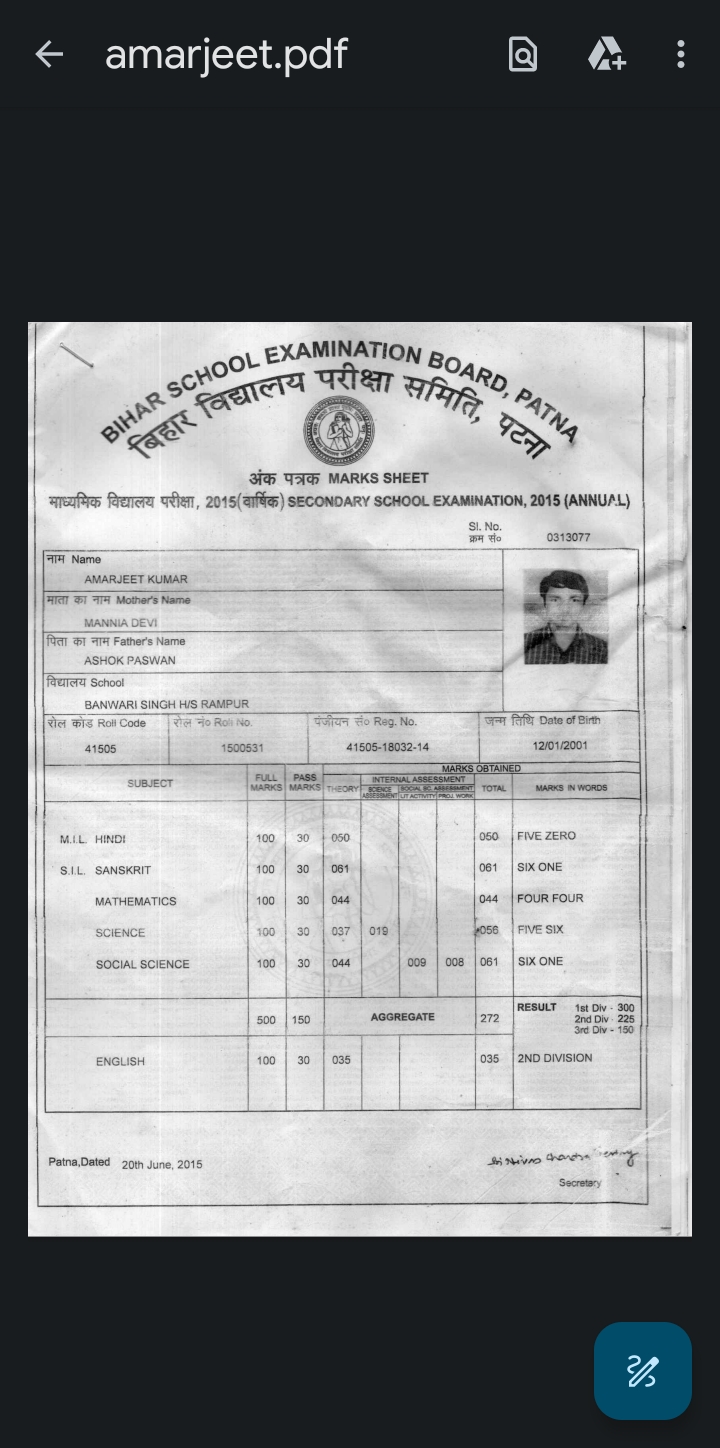 amarjeet.pdf
BIHAR SCHOOL EXAMINATION BOARD, PATNA
बिहार विद्यालय परीक्षा समिति, पटना
अंक पत्रक MARKS SHEET
माध्यमिक विद्यालय परीक्षा, 2015(वार्षिक) SECONDARY SCHOOL EXAMINATION, 2015 (ANNUAL)
Sl. No.
क्रम सं० 0313077
नाम Name
AMARJEET KUMAR
माता का नाम Mother's Name
MANNIA DEVI
पिता का नाम Father's Name
ASHOK PASWAN
विद्यालय School
BANWARI SINGH H/S RAMPUR
रोल कोड Roll Code रोल नं० Roll No. पंजीयन सं० Reg. No. जन्म तिथि Date of Birth
41505 1500531 41505-18032-14 12/01/2001
MARKS OBTAINED
SUBJECT FULL MARKS PASS MARKS THEORY INTERNAL ASSESSMENT TOTAL MARKS IN WORDS
SCIENCE ASSESSMENT SOCIAL SC. ASSESSMENT
LIT ACTIVITY PROJ. WORK
M.I.L. HINDI 100 30 050 050 FIVE ZERO
S.I.L. SANSKRIT 100 30 061 061 SIX ONE
MATHEMATICS 100 30 044 044 FOUR FOUR
SCIENCE 100 30 037 019 056 FIVE SIX
SOCIAL SCIENCE 100 30 044 009 008 061 SIX ONE
500 150 AGGREGATE 272 RESULT 1st Div - 300
2nd Div - 225
3rd Div - 150
ENGLISH 100 30 035 035 2ND DIVISION
Patna,Dated 20th June, 2015
Secretary